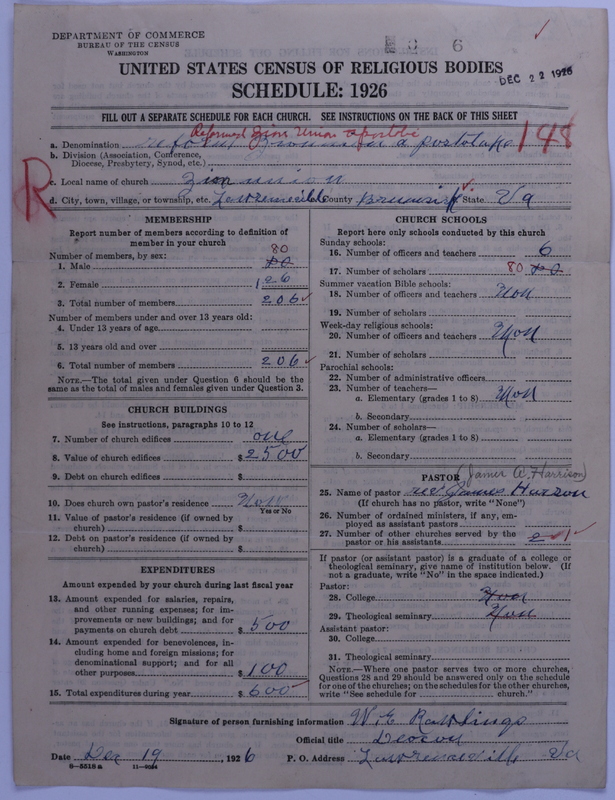 DEPARTMENT OF COMMERCE
BUREAU OF THE CENSUS
WASHINGTON
6
DEC 22 1926
UNITED STATES CENSUS OF RELIGIOUS BODIES
SCHEDULE: 1926
FILL OUT A SEPARATE SCHEDULE FOR EACH CHURCH. SEE INSTRUCTIONS ON THE BACK OF THIS SHEET
Reformed Zion Union Apostolic
148
a. Denomination
b. Division (Association, Conference,
Diocese, Presbytery, Synod, etc.)
R
c. Local name of church Zion union
d. City, town, village, or township, etc. Lawrenceville County Brunswick State Va
MEMBERSHIP
Report number of members according to definition of
member in your church
Number of members, by sex:
80
1. Male
2. Female 126
3. Total number of members 206
Number of members under and over 13 years old:
4. Under 13 years of age
5. 13 years old and over
6. Total number of members 206
NOTE.—The total given under Question 6 should be the
same as the total of males and females given under Question 3.
CHURCH BUILDINGS
See instructions, paragraphs 10 to 12
7. Number of church edifices one
8. Value of church edifices $2500
9. Debt on church edifices $
10. Does church own pastor's residence
Yes or No
11. Value of pastor's residence (if owned by
church) $
12. Debt on pastor's residence (if owned by
church) $
EXPENDITURES
Amount expended by your church during last fiscal year
13. Amount expended for salaries, repairs,
and other running expenses; for im-
provements or new buildings; and for
payments on church debt $500
14. Amount expended for benevolences, in-
cluding home and foreign missions; for
denominational support; and for all
other purposes $100
15. Total expenditures during year $600
CHURCH SCHOOLS
Report here only schools conducted by this church
Sunday schools:
16. Number of officers and teachers 6
17. Number of scholars 80
Summer vacation Bible schools:
18. Number of officers and teachers Non
19. Number of scholars
Week-day religious schools:
20. Number of officers and teachers Non
21. Number of scholars
Parochial schools:
22. Number of administrative officers
23. Number of teachers—
a. Elementary (grades 1 to 8) Non
b. Secondary
24. Number of scholars—
a. Elementary (grades 1 to 8)
b. Secondary
PASTOR (James W. Harrison)
25. Name of pastor
(If church has no pastor, write "None")
26. Number of ordained ministers, if any, em-
ployed as assistant pastors
27. Number of other churches served by the
pastor or his assistants 2 1
If pastor (or assistant pastor) is a graduate of a college or
theological seminary, give name of institution below. (If
not a graduate, write "No" in the space indicated.)
Pastor:
28. College Non
29. Theological seminary Non
Assistant pastor:
30. College
31. Theological seminary
NOTE.—Where one pastor serves two or more churches,
Questions 28 and 29 should be answered only on the schedule
for one of the churches; on the schedules for the other churches,
write "See schedule for church."
Signature of person furnishing information W. E. Rawlings
Official title Deacon
Date Dec 19, 1926 P. O. Address Lawrenceville Va
8—5518 a 11—9664